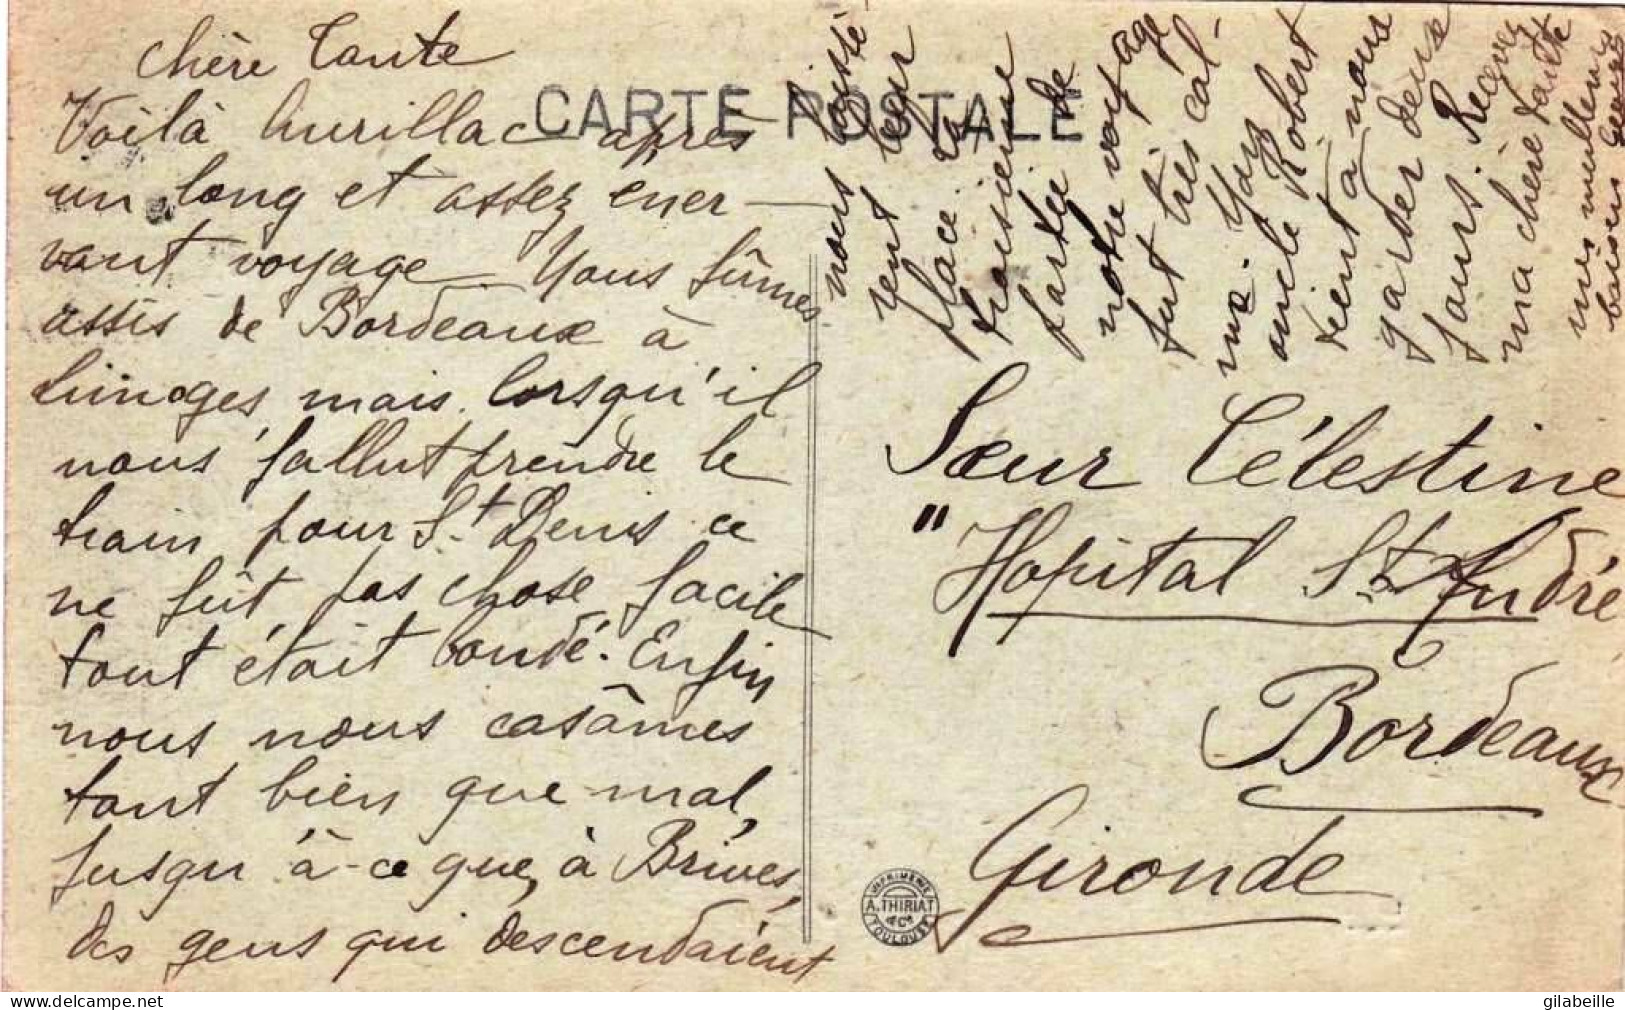 CARTE POSTALE
Chère Tante
Voilà Aurillac après
un long et assez ener-
vant voyage. Nous fûmes
assis de Bordeaux à
Limoges, mais lorsqu'il
nous fallut prendre le
train pour St Denis ce
ne fût pas chose facile
tout était bondé. Enfin
nous nous casâmes
tant bien que mal,
jusqu'à-ce que, à Brives,
des gens qui descendaient
nous laissè-
rent leur
place. La
troisième
partie de
notre voyage
fut très cal-
me.
oncle Robert
vient à nous
garder deux
jours. Recevez
ma chère tante
mes meilleurs
baisers
Sœur Célestine
"Hopital St André
Bordeaux
Gironde
IMPRIMERIE
A. THIRIAT
& Cie
TOULOUSE
gilabeille